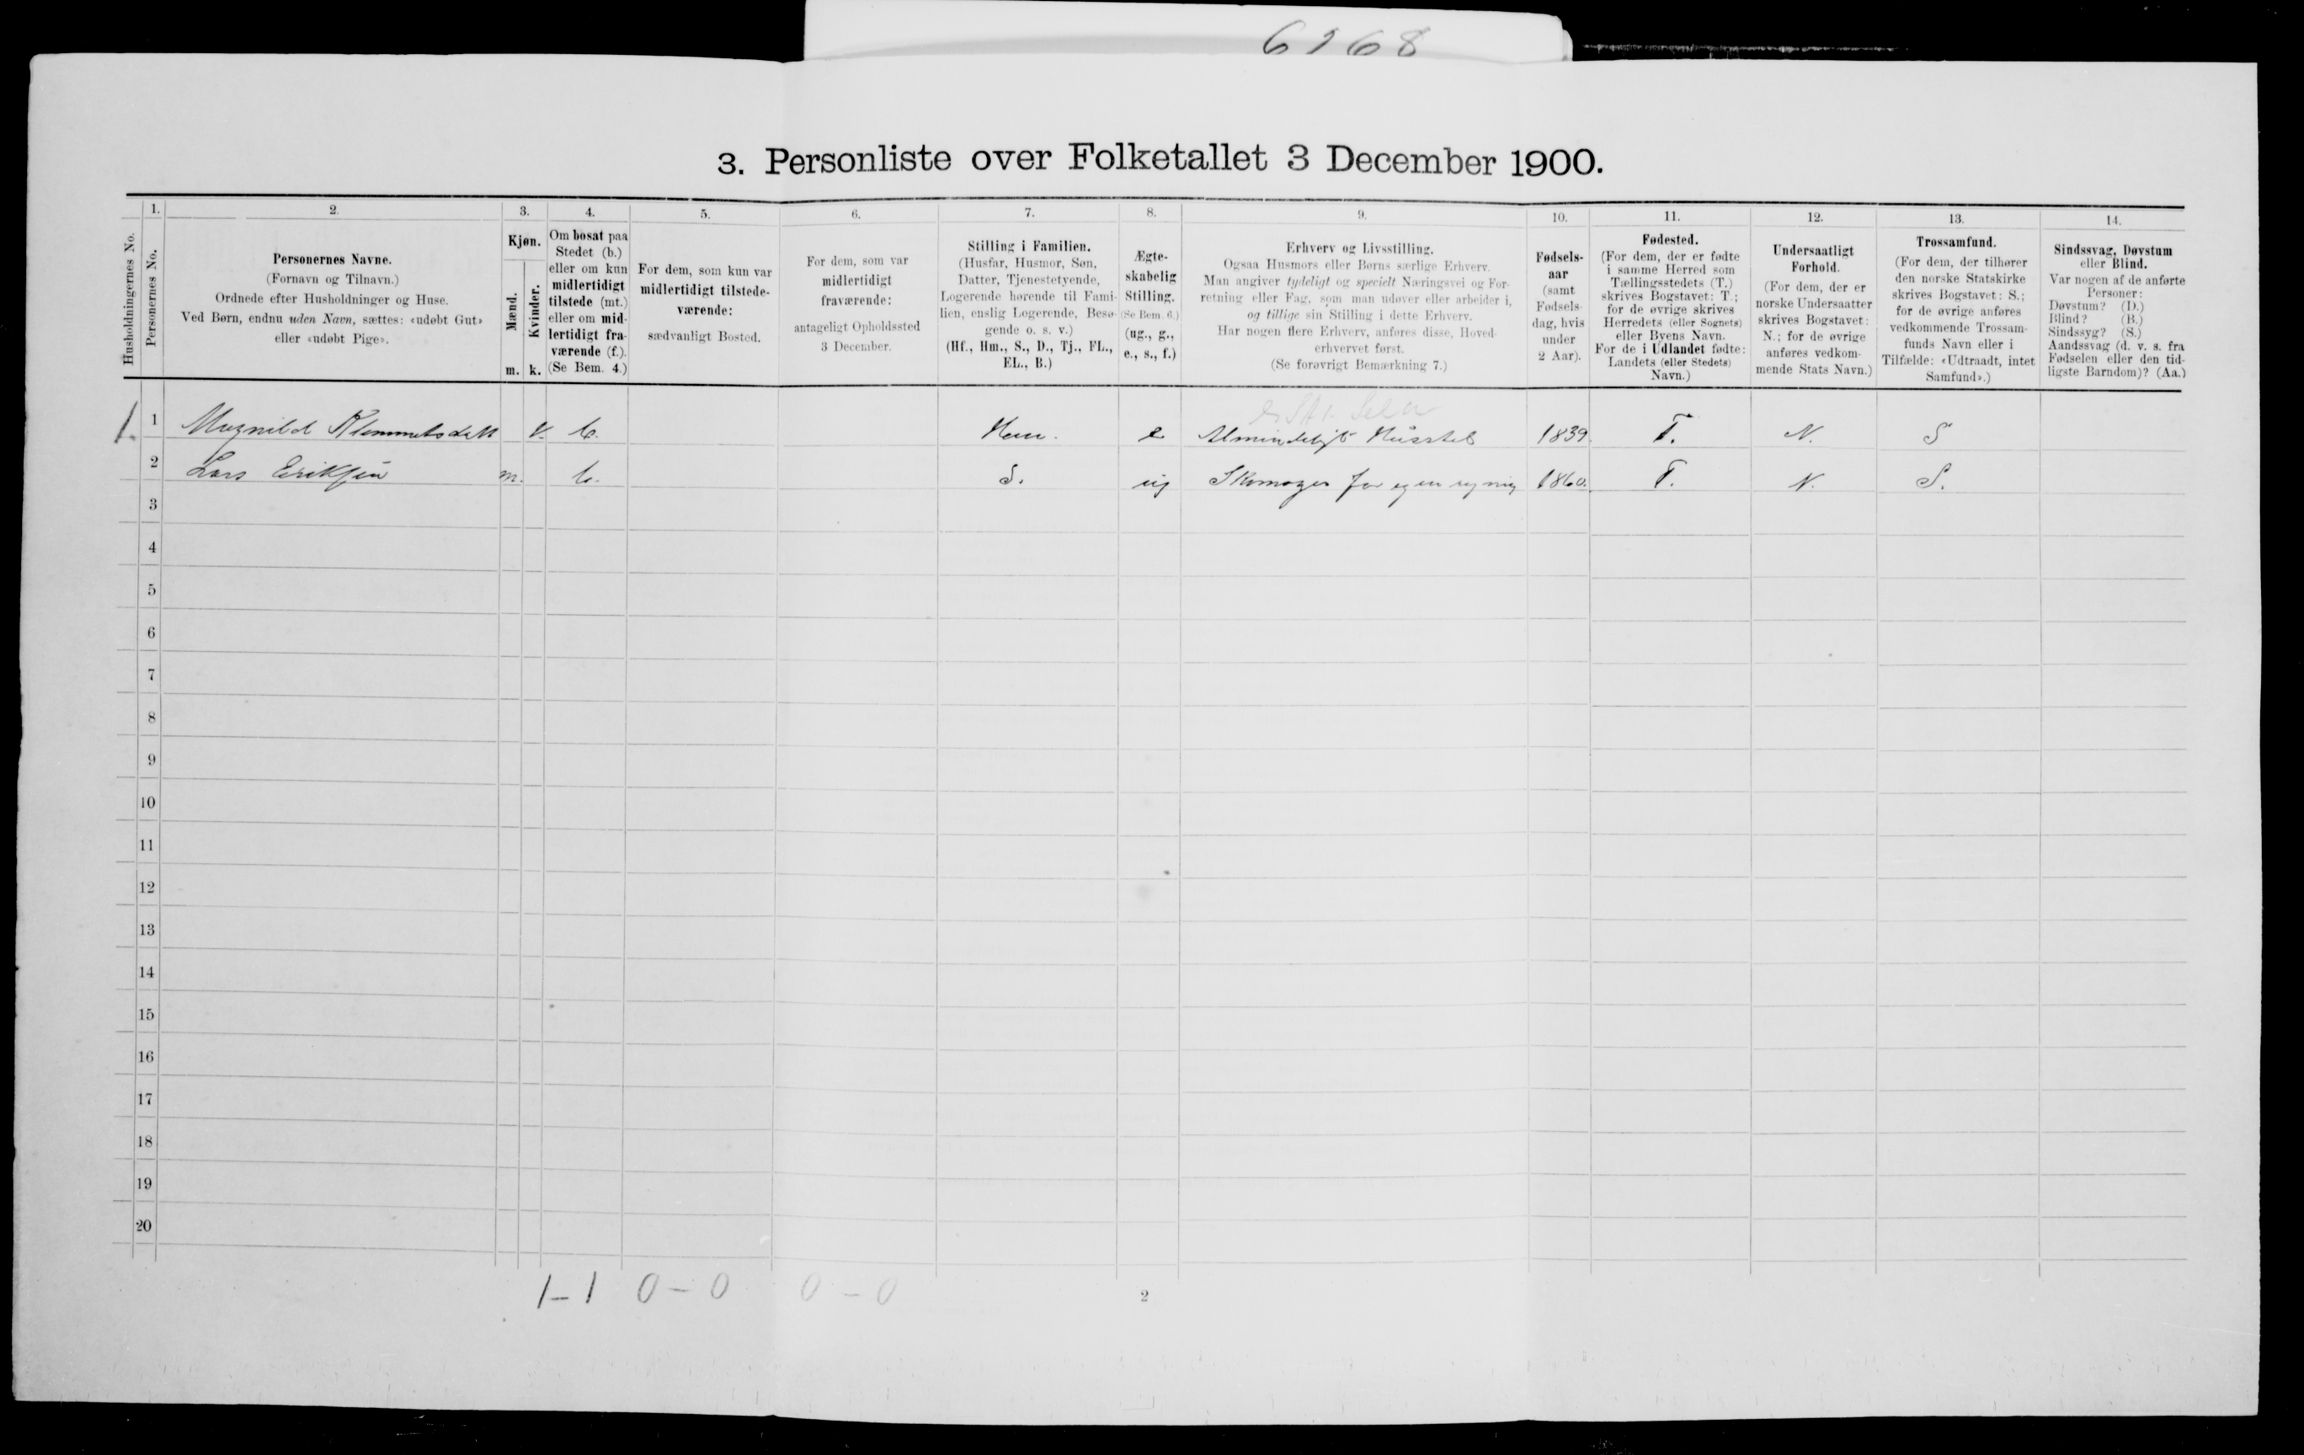 6168
3. Personliste over Folketallet 3 December 1900.
Husholdningernes No.
1.
Personernes No.
2.
Personernes Navne.
(Fornavn og Tilnavn.)
Ordnede efter Husholdninger og Huse.
Ved Børn, endnu uden Navn, sættes: «udøbt Gut»
eller «udøbt Pige».
3.
Kjøn.
Mænd.
Kvinder.
m. k.
4.
Om bosat paa
Stedet (b.)
eller om kun
midlertidigt
tilstede (mt.)
eller om mid-
lertidigt fra-
værende (f.).
(Se Bem. 4.)
5.
For dem, som kun var
midlertidigt tilstede-
værende:
sædvanligt Bosted.
6.
For dem, som var
midlertidigt
fraværende:
antageligt Opholdssted
3 December.
7.
Stilling i Familien.
(Husfar, Husmor, Søn,
Datter, Tjenestetyende,
Logerende hørende til Fami-
lien, enslig Logerende, Besø-
gende o. s. v.)
(Hf., Hm., S., D., Tj., FL.,
EL., B.)
8.
Ægte-
skabelig
Stilling.
(Se Bem. 6.)
(ug., g.,
e., s., f.)
9.
Erhverv og Livsstilling.
Ogsaa Husmors eller Børns særlige Erhverv.
Man angiver tydeligt og specielt Næringsvei og For-
retning eller Fag, som man udøver eller arbeider i,
og tillige sin Stilling i dette Erhverv.
Har nogen flere Erhverv, anføres disse, Hoved-
erhvervet først.
(Se forøvrigt Bemærkning 7.)
10.
Fødsels-
aar
(samt
Fødsels-
dag, hvis
under
2 Aar).
11.
Fødested.
(For dem, der er fødte
i samme Herred som
Tællingsstedets (T.)
skrives Bogstavet: T.;
for de øvrige skrives
Herredets (eller Sognets)
eller Byens Navn.
For de i Udlandet fødte:
Landets (eller Stedets)
Navn.)
12.
Undersaatligt
Forhold.
(For dem, der er
norske Undersaatter
skrives Bogstavet:
N.; for de øvrige
anføres vedkom-
mende Stats Navn.)
13.
Trossamfund.
(For dem, der tilhører
den norske Statskirke
skrives Bogstavet: S.;
for de øvrige anføres
vedkommende Trossam-
funds Navn eller i
Tilfælde: «Udtraadt, intet
Samfund».)
14.
Sindssvag, Døvstum
eller Blind.
Var nogen af de anførte
Personer:
Døvstum? (D.)
Blind? (B.)
Sindssyg? (S.)
Aandssvag (d. v. s. fra
Fødselen eller den tid-
ligste Barndom)? (Aa.)
1. 1 Magnild Klemmetsdatt k. b. Hm. e Almindeligt Husstel 1839. T. N. S
2 Lars Eriksen m. b. S. ug Skomager for egen regning 1860. T. N. S.
3
4
5
6
7
8
9
10
11
12
13
14
15
16
17
18
19
20
1-1 0-0 0-0
2